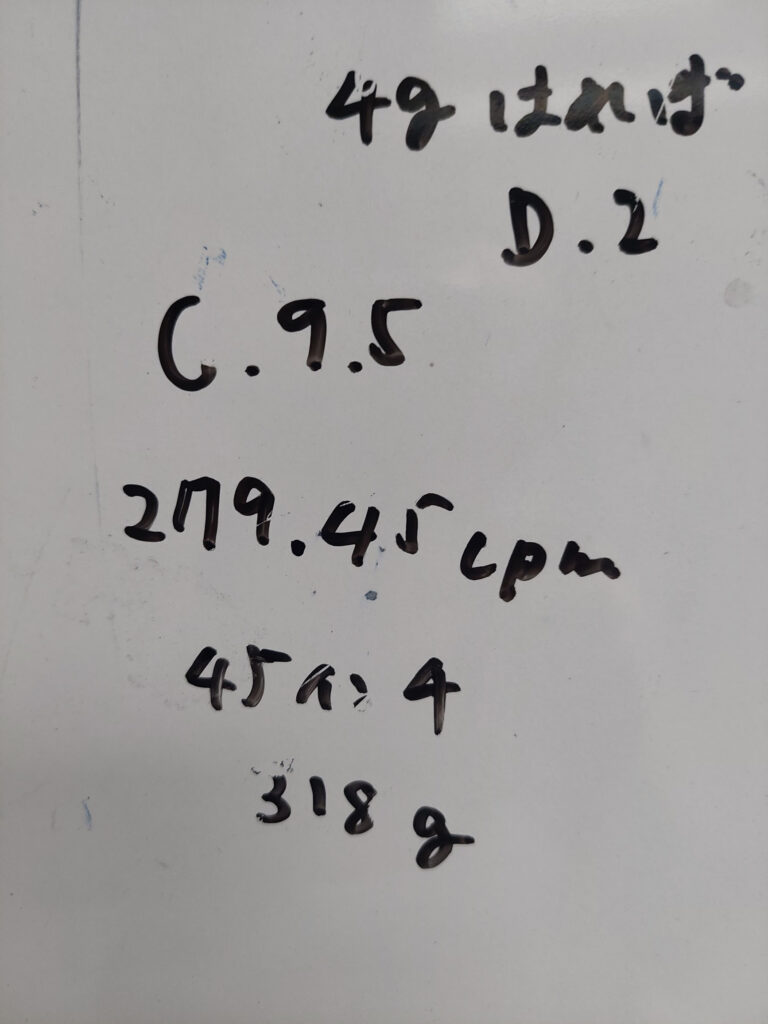 4g はれば
D.2
C.9.5
279.45cpm
45 4
318g